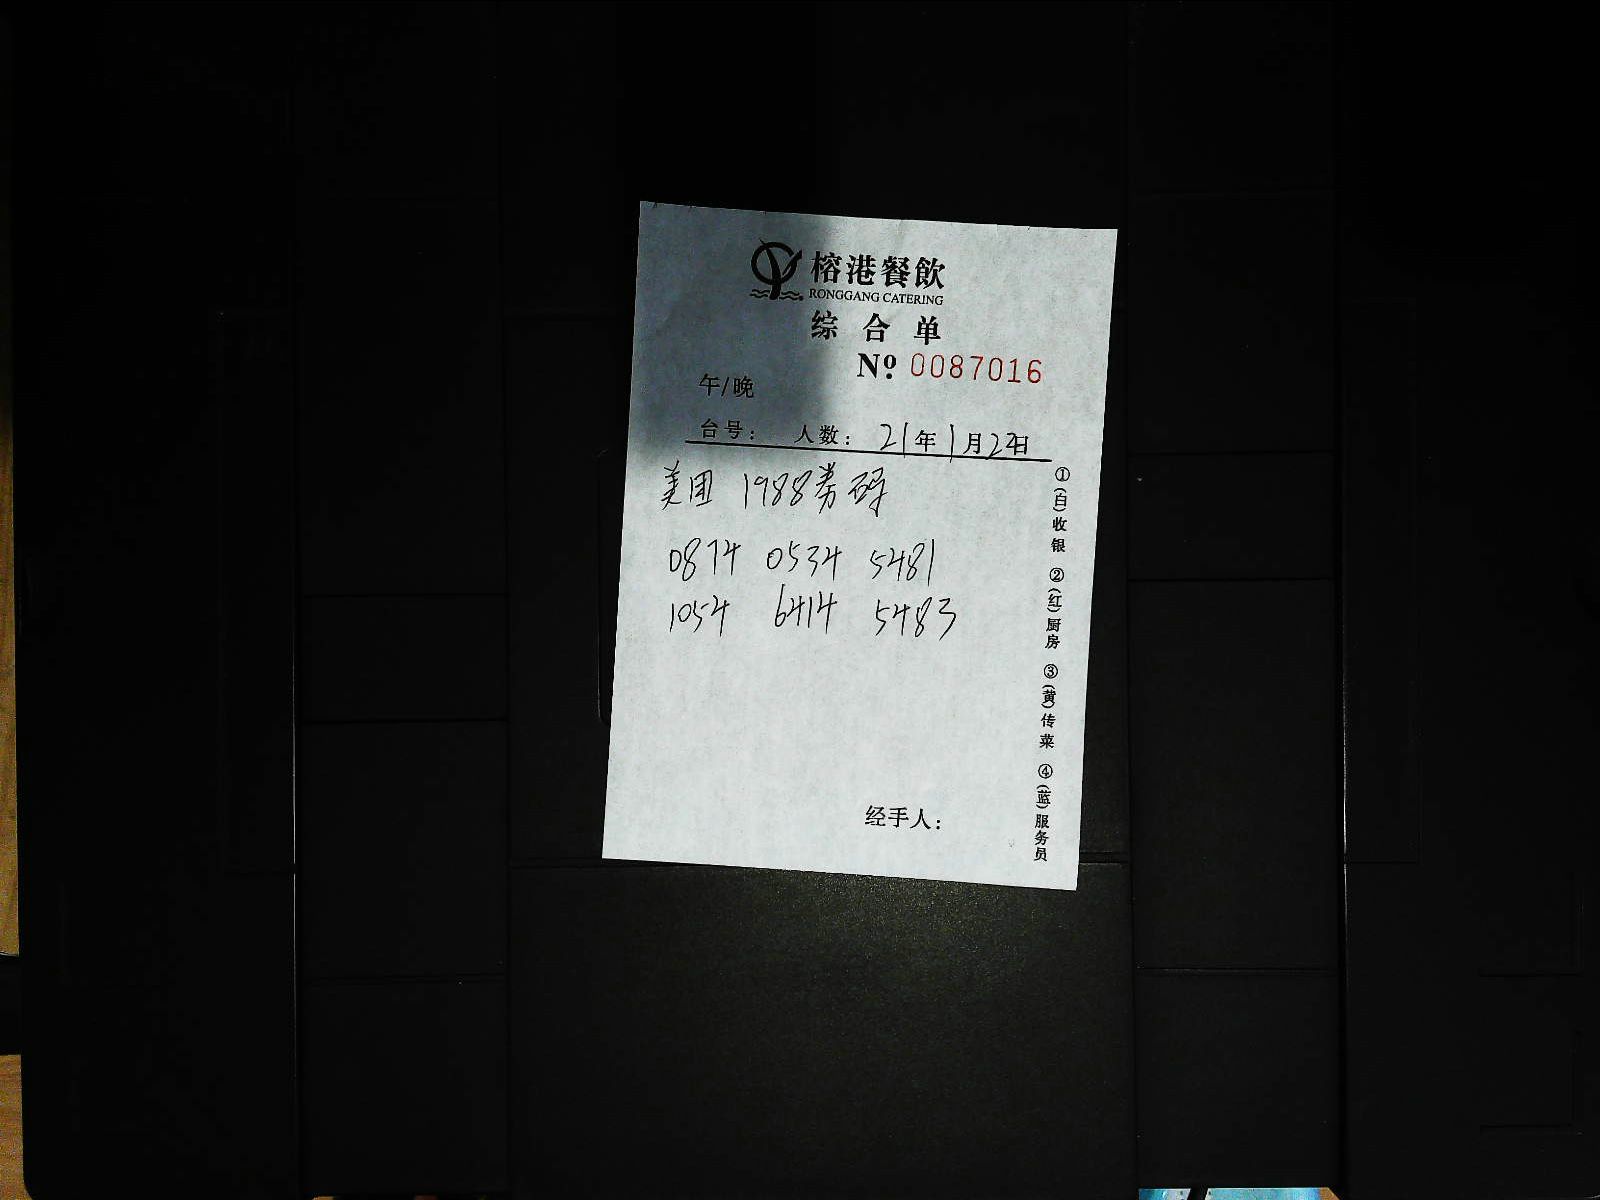 榕港餐飲
RONGGANG CATERING
综合单
Nº 0087016
午/晚
台号： 人数： 21年1月22日
美团 1988券码
0874 0534 5481
1054 6414 5483
经手人：
①(白)收银 ②(红)厨房 ③(黄)传菜 ④(蓝)服务员